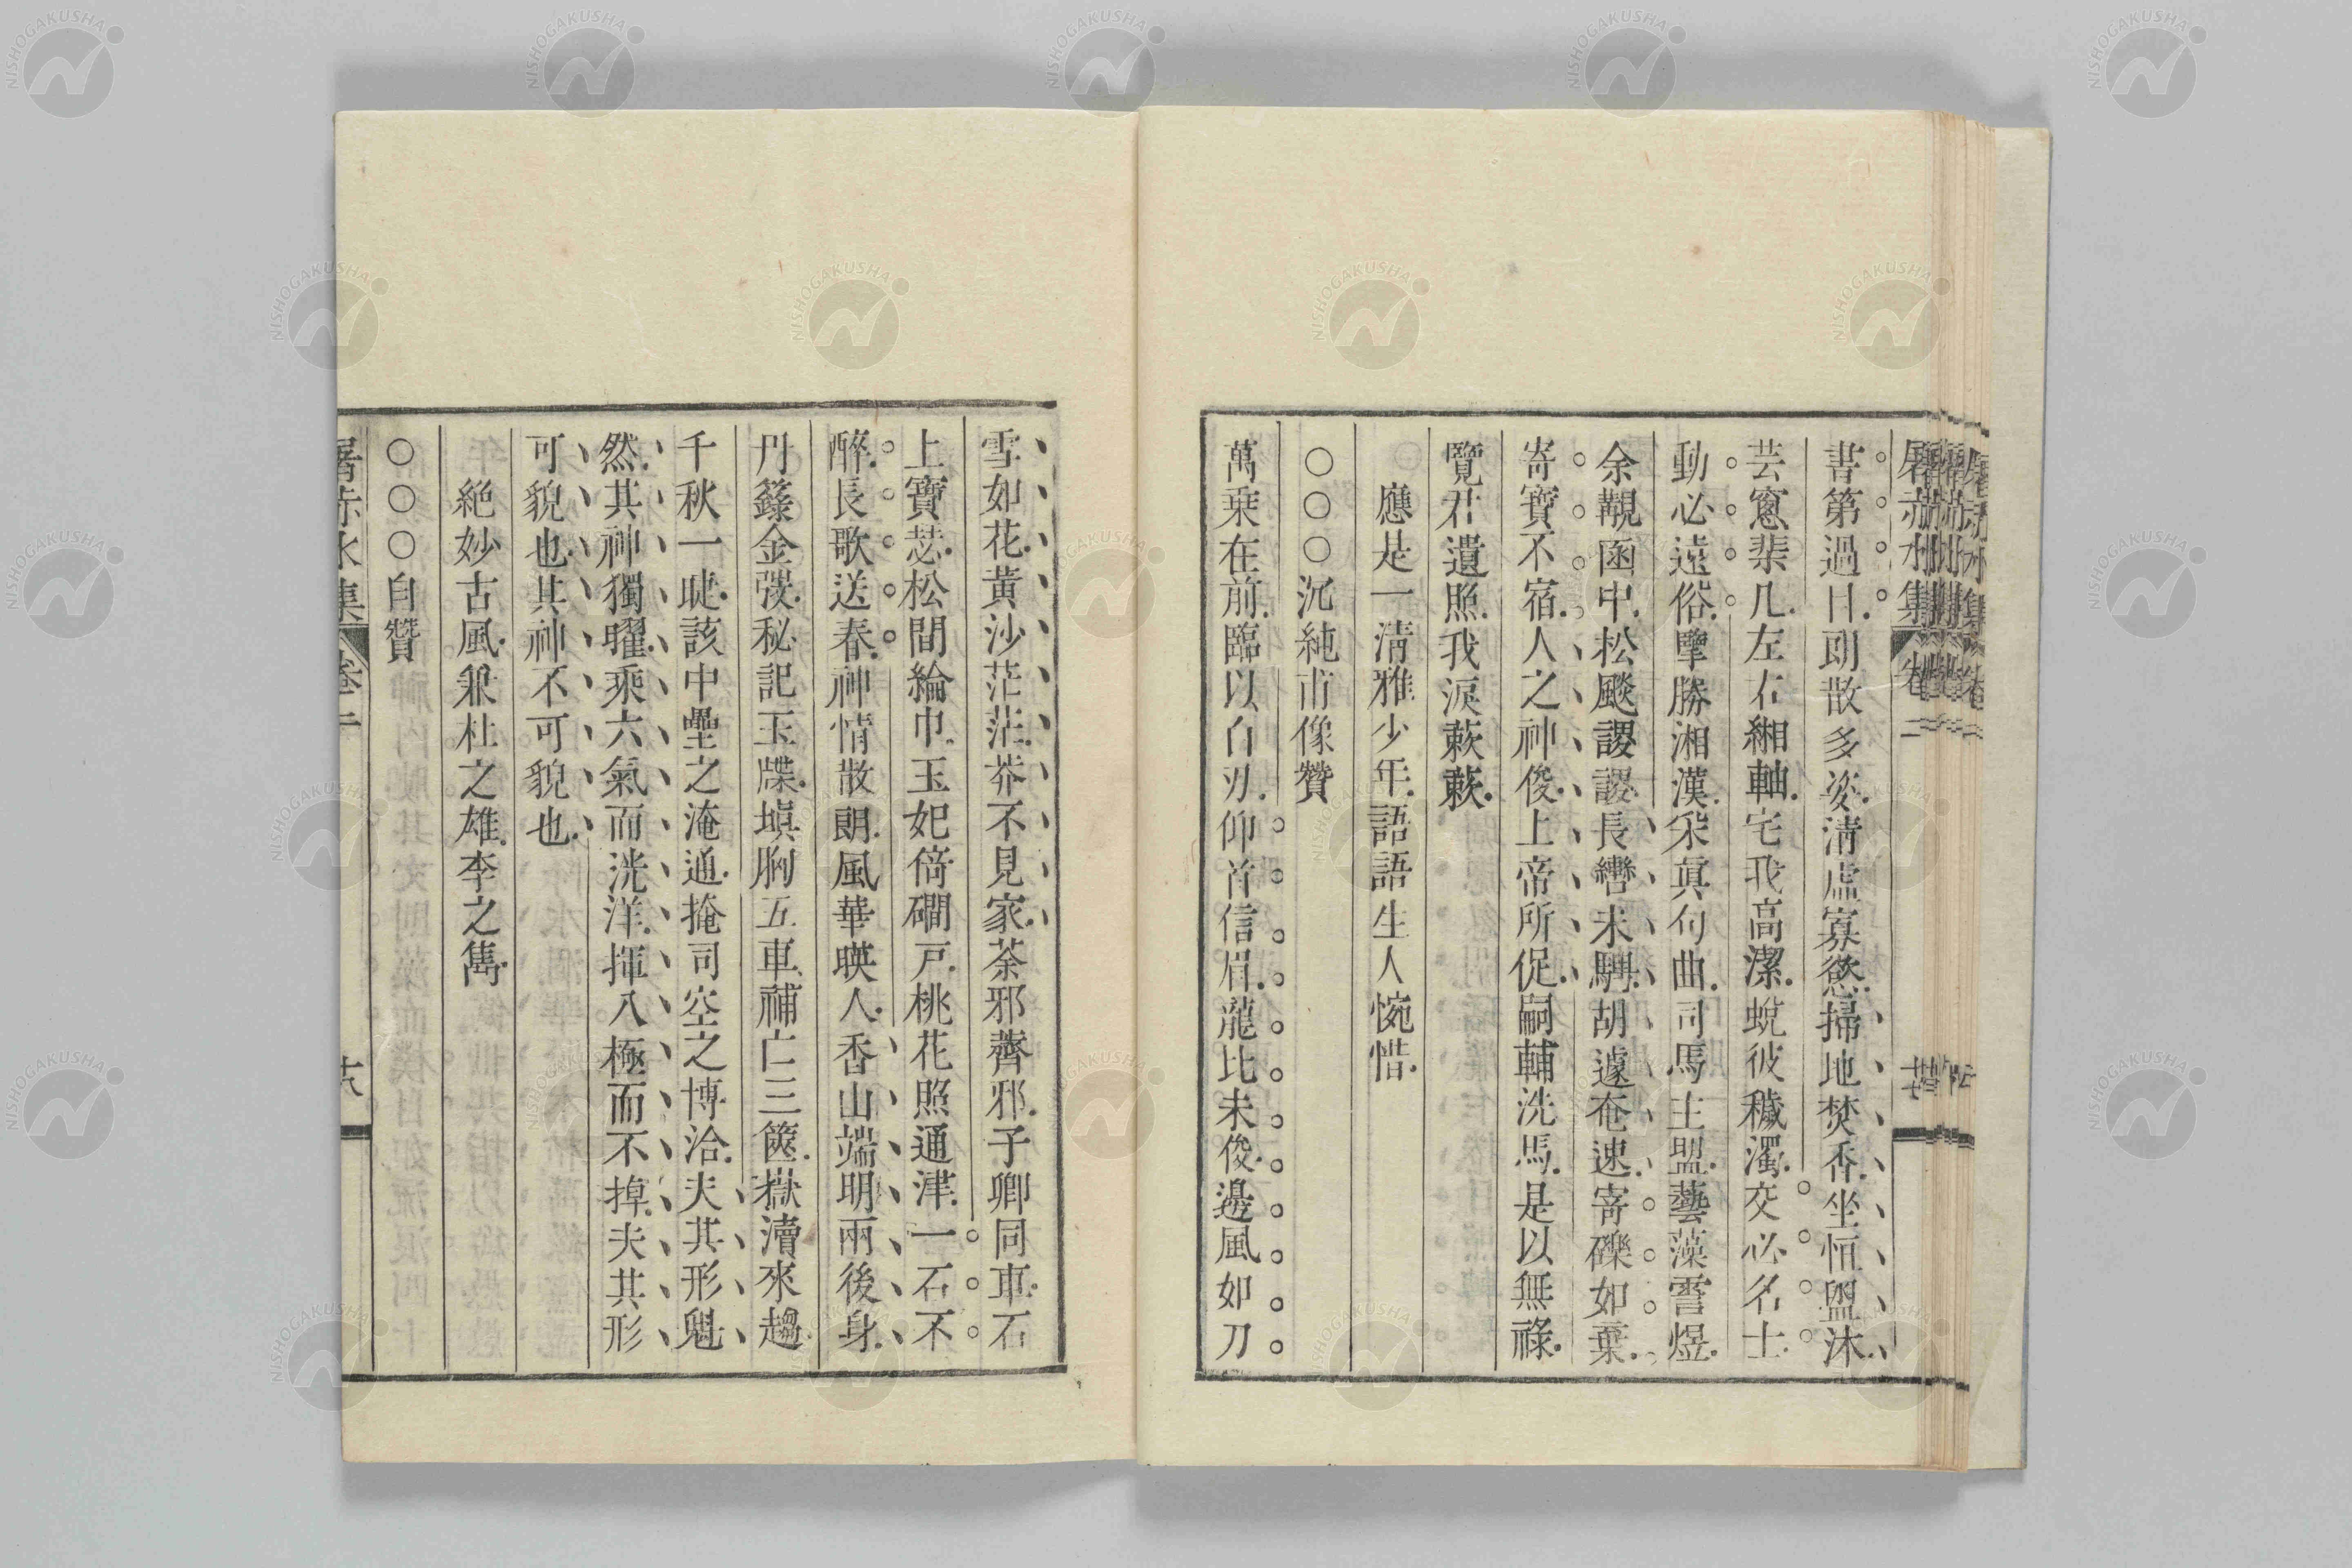 屠赤水集 卷二
書第過目朗散多姿淸虛寡慾掃地焚香坐恒盥沐
芸窻棐几左右緗軸宅我高潔蛻彼穢濁交必名士
動必遠俗擥勝湘漢采眞句曲司馬主盟藝藻霅煜
余覯函中松颷謖謖長轡未騁胡遽奄速寄礫如葉
寄寶不宿人之神俊上帝所促嗣輔洗馬是以無祿
覽君遺照我淚蔌蔌
應是一淸雅少年語語生人惋惜
○○○沉純甫像贊
萬乗在前臨以白刃仰首信眉龍比未俊邊風如刀
雪如花黃沙茫茫茶不見家荼邪薺邪子卿同車石
上寶苾松間綸巾玉妃倚磵戸桃花照通津一石不
醉長歌送春神情散朗風華暎人香山端明兩後身
丹籙金弢秘記玉牒塡胸五車補亡三篋嶽瀆來趨
千秋一睫該中壘之淹通掩司空之博洽夫其形魁
然其神獨曜乘六氣而洸洋揮八極而不掉夫其形
可貌也其神不可貌也
絕妙古風兼杜之雄李之雋
○○○自贊
屠赤水集 卷二 十六
NISHOGAKUSHA